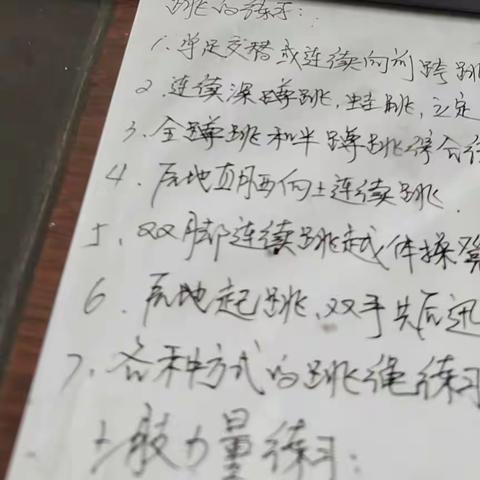 跳的练习:
1. 单足交替或连续向前跨跳
2. 连续深蹲跳,蛙跳,立定
3. 全蹲跳和半蹲跳结合
4. 原地直腿向上连续跳.
5. 双脚连续跳越体操凳
6. 原地起跳,双手先后迅
7. 各种方式的跳绳练习
上肢力量练习: